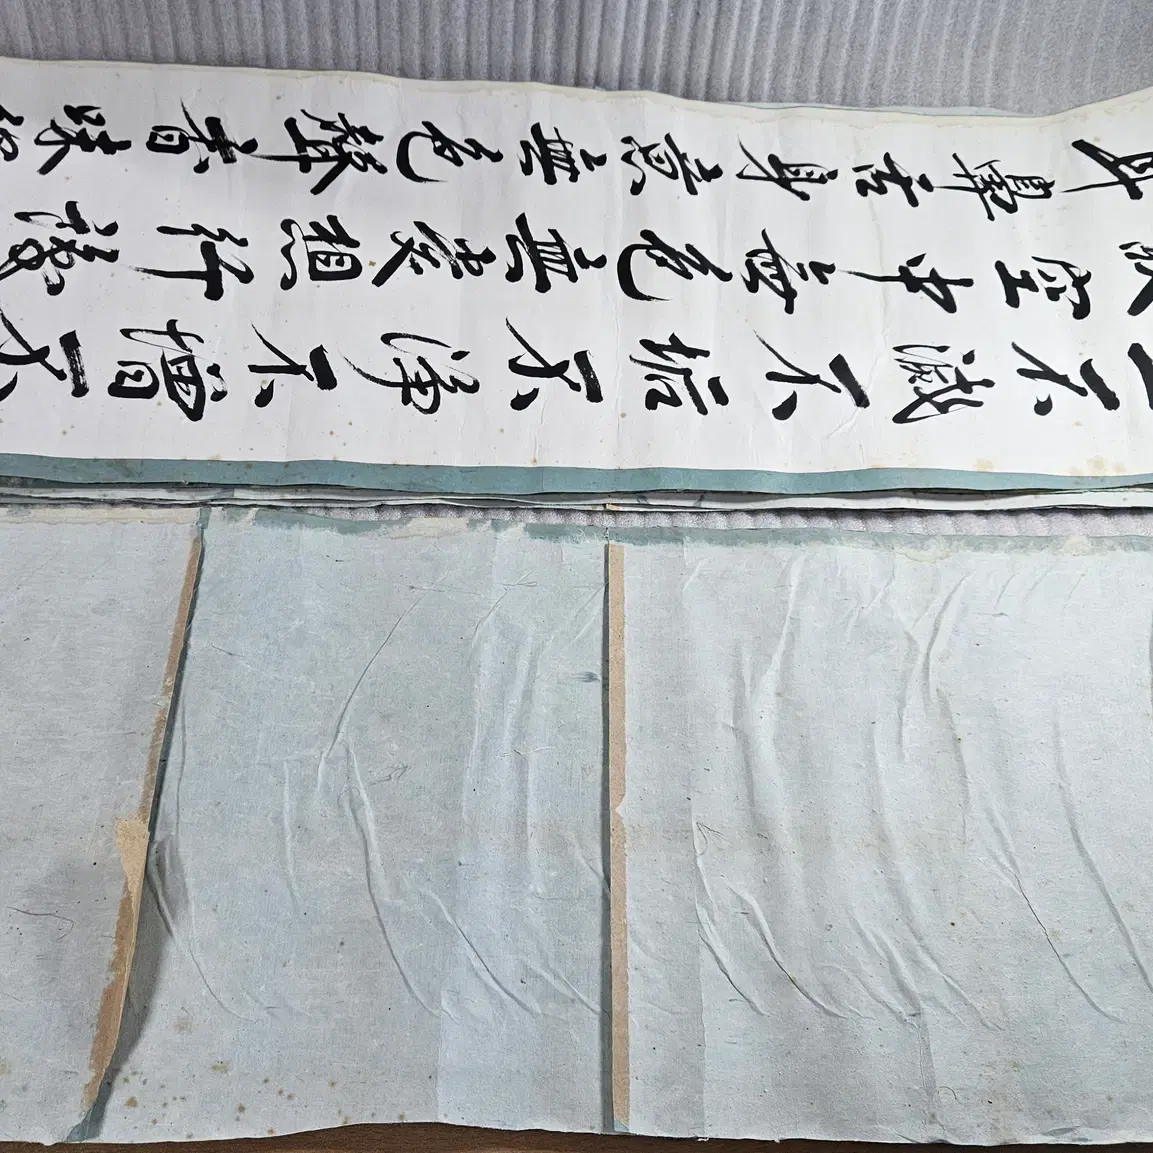 不滅不垢不淨不增不
空中無色無受想行識
耳鼻舌身意無色聲香味